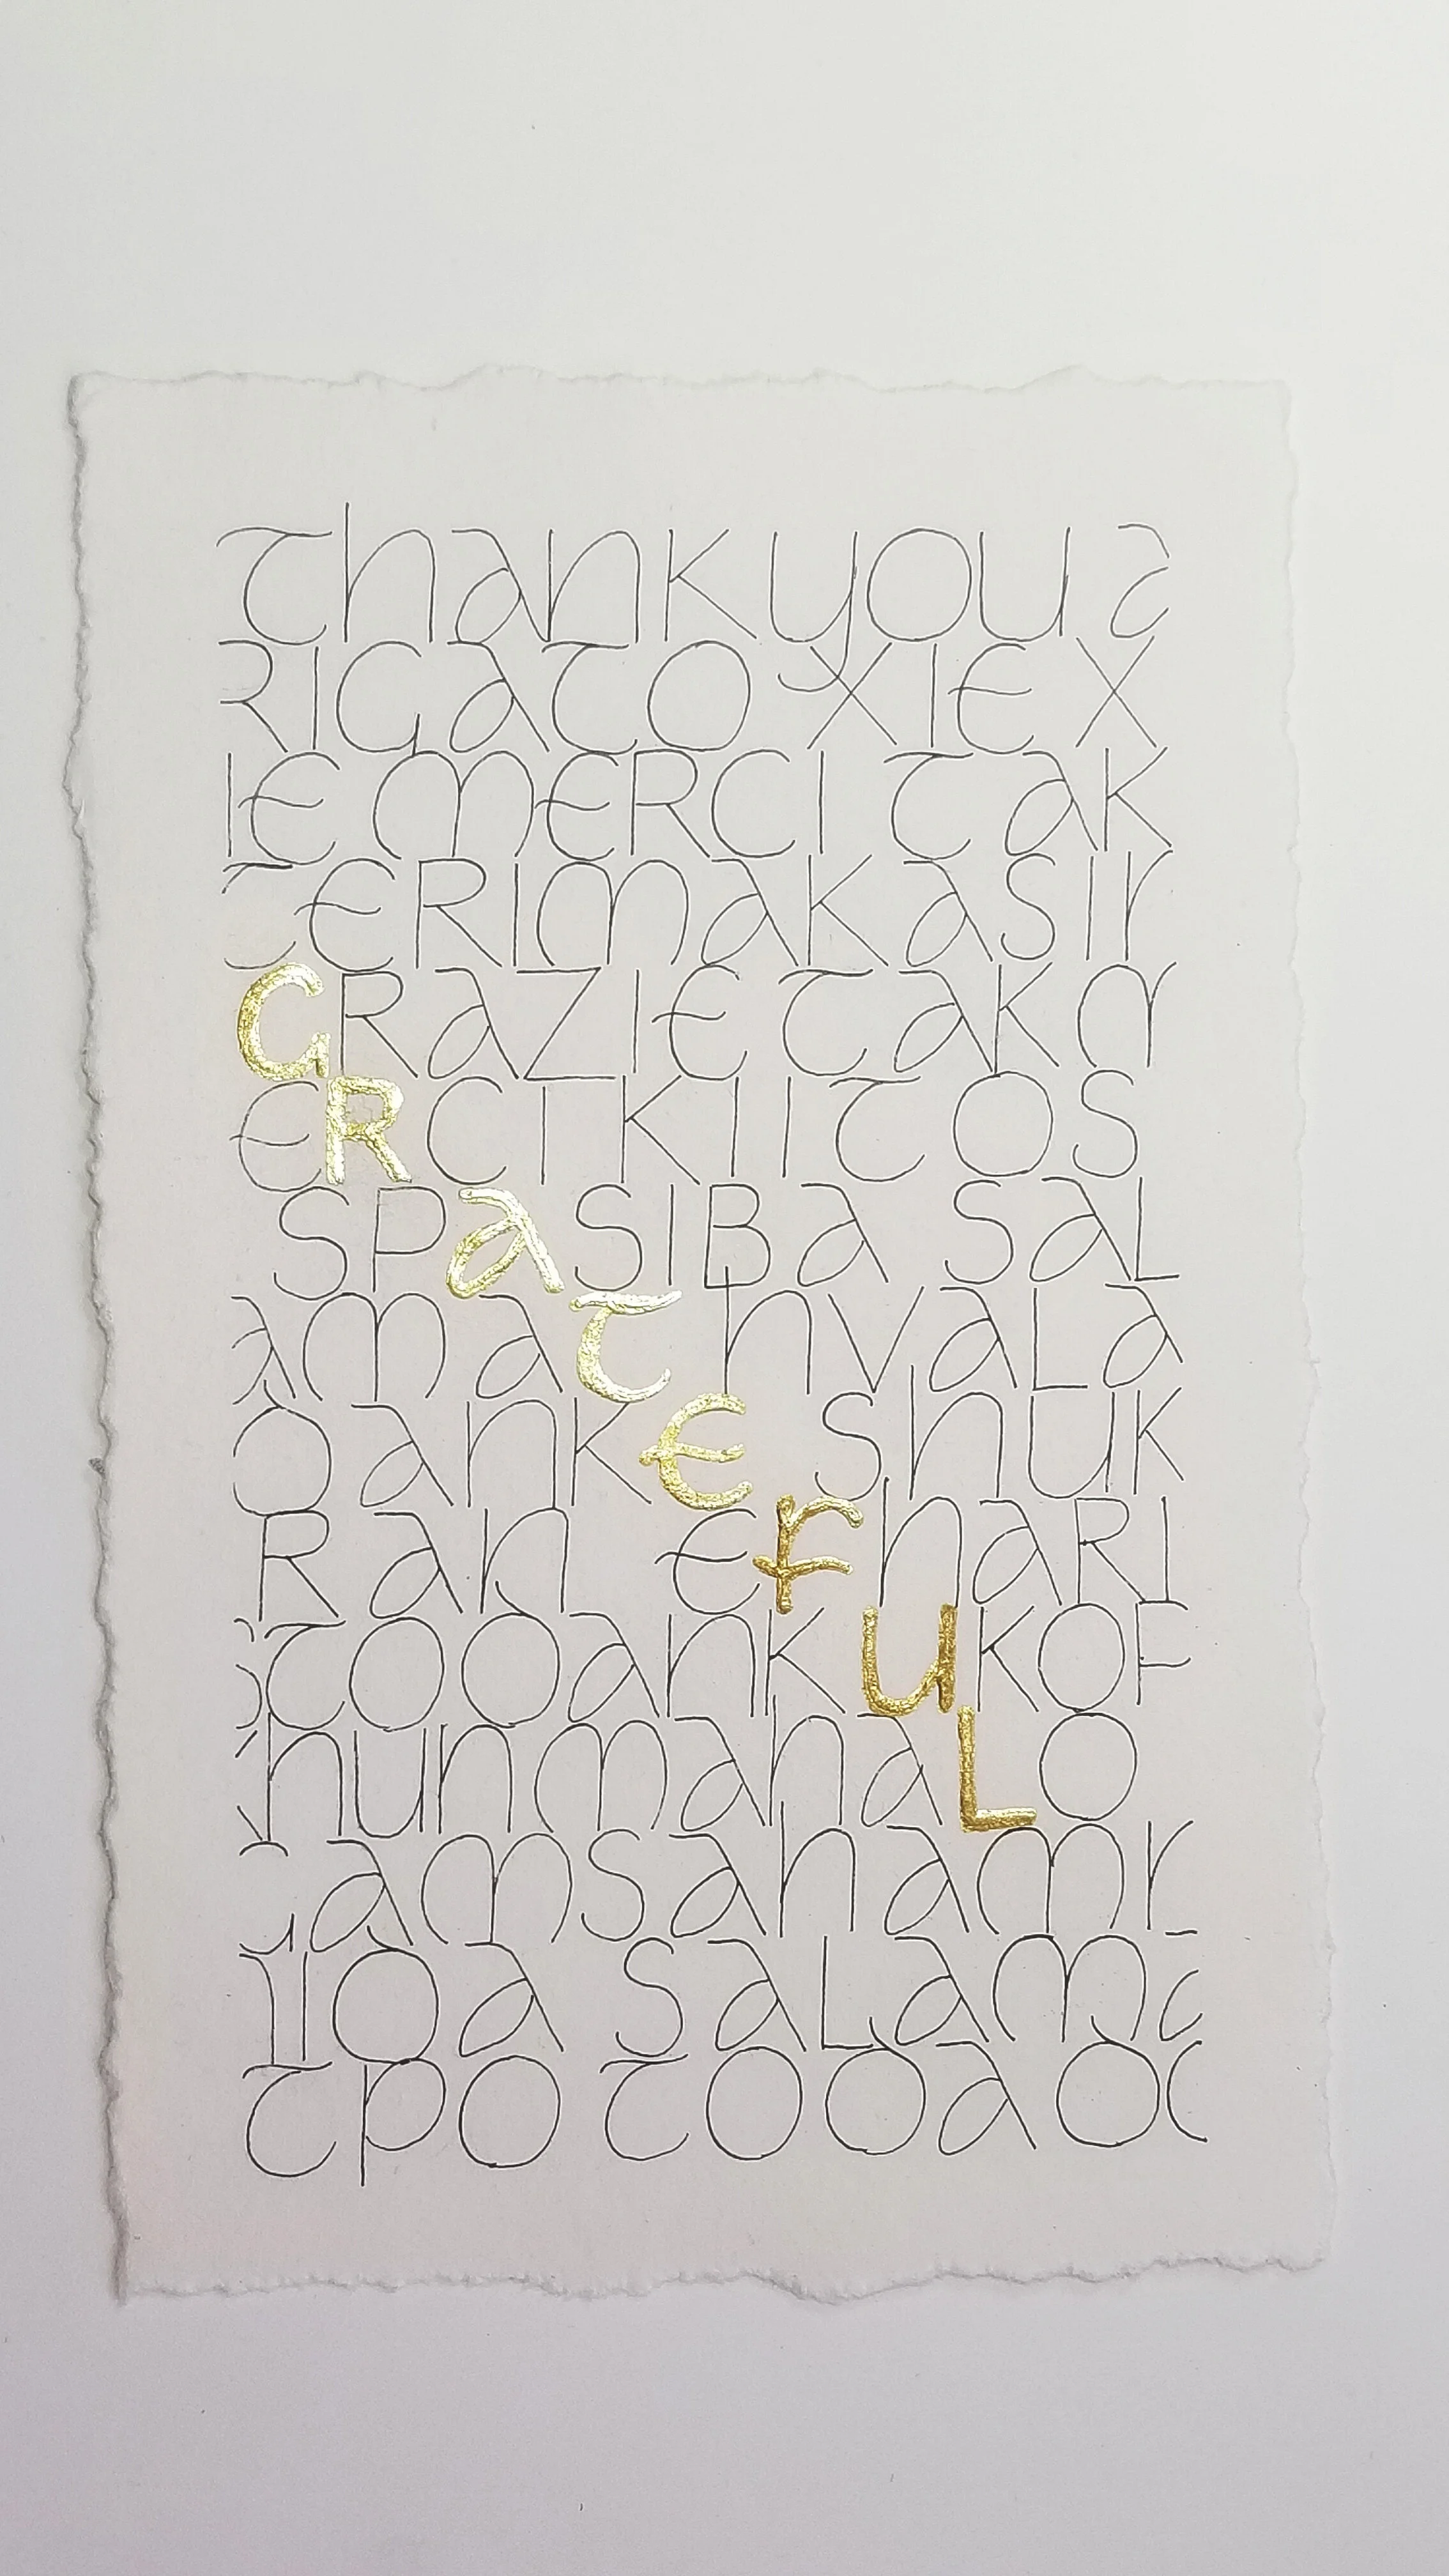 Thank you a
RIGATO XIE X
IE MERCI TAK
TERIMAKASIH
GRAZIE TAK M
ERCI KIITOS
SPASIBA SAL
AMAT HVALA
DANKE SHUK
RAN EFHARI
STO DANK U KOP
KHUN MAHA LO
GAMSAHAMN
IDA SALAMA
TPO TODA DO